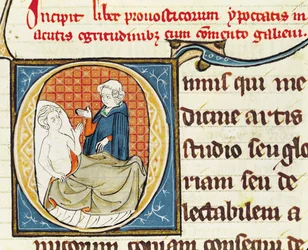 Incipit liber pronosticorum ypocratis in
acutis egritudinibus cum comento gallieni.
Omnis qui me
dicine artis
studio seu glo
riam seu de
lectabilem a
micorum copiam consequi d